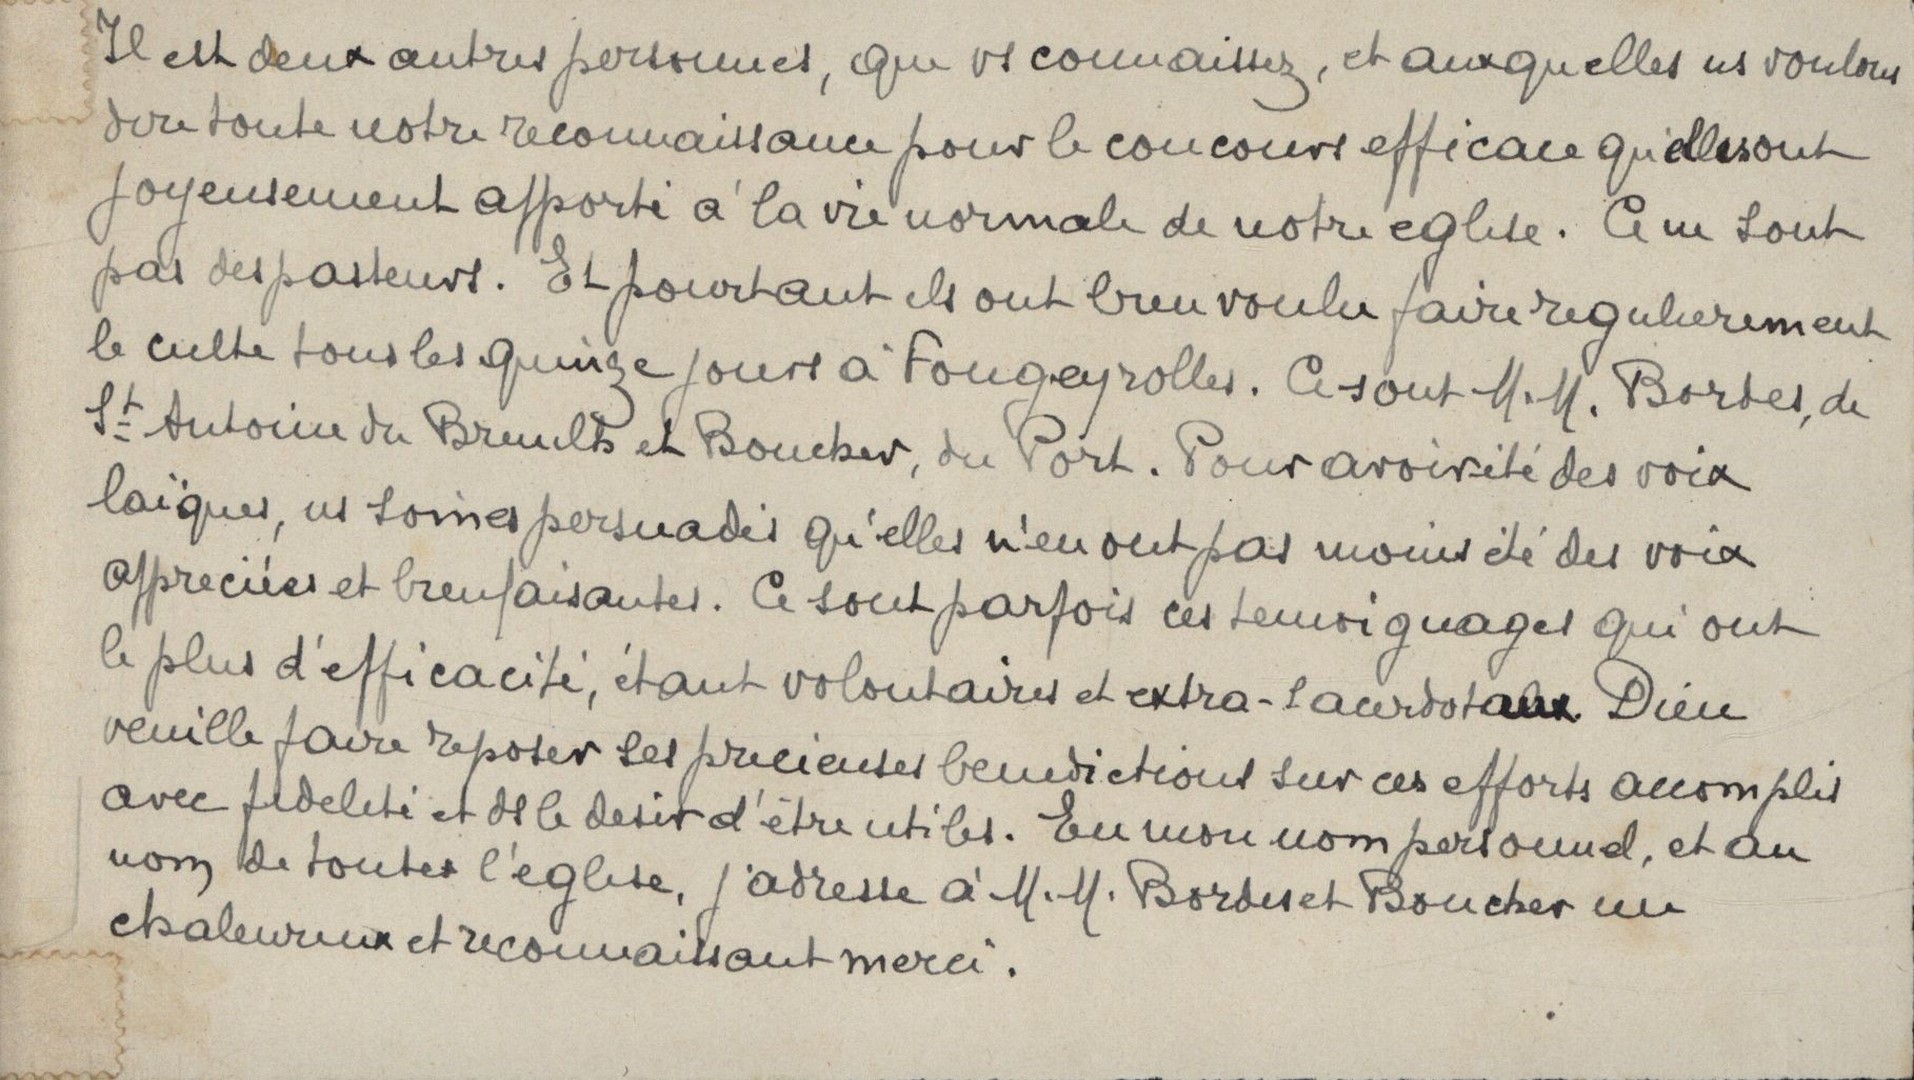 Il est deux autres personnes, que vs connaissez, et auxquelles ns voulons
dire toute notre reconnaissance pour le concours efficace qu'elles ont
joyeusement apporté à la vie normale de notre eglise. Ce ne sont
pas des pasteurs. Et pourtant ils ont bien voulu faire regulierement
le culte tous les quinze jours à Fougeyrolles. Ce sont M.M. Bordes, de
St Antoine du Breuilh et Boucher, du Port. Pour avoir été des voix
laïques, ns somes persuadés qu'elles n'en ont pas moins été des voix
appreciées et bienfaisantes. Ce sont parfois ces temoignages qui ont
le plus d'efficacité, étant volontaires et extra-sacerdotaux. Dieu
veuille faire reposer ses precieuses benedictions sur ces efforts accomplis
avec fidelité et ds le desir d'être utiles. En mon nom personnel, et au
nom de toute l'eglise, j'adresse à M.M. Bordes et Boucher un
chaleureux et reconnaissant merci.